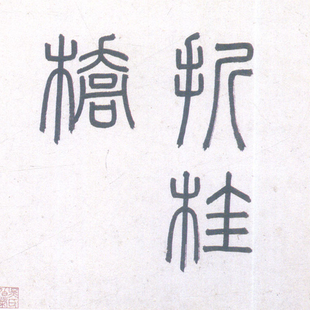 折桂
橋